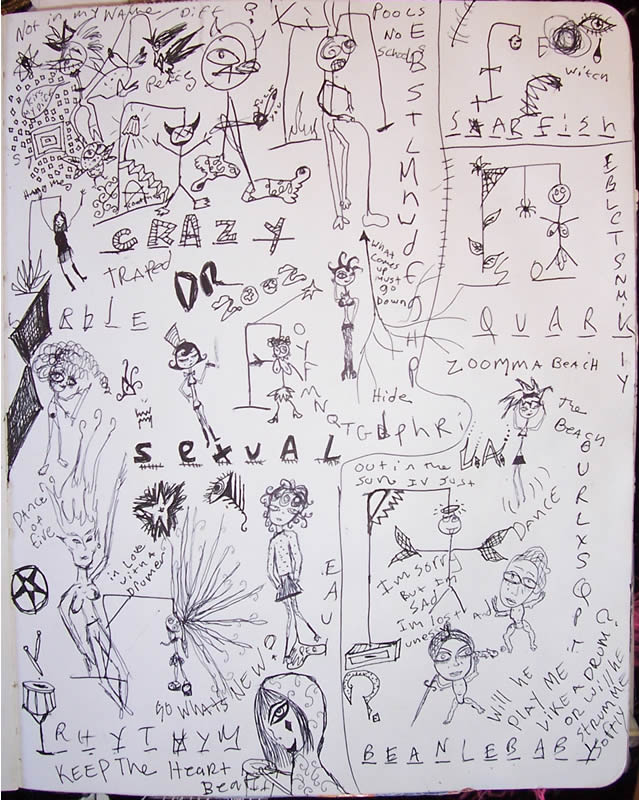 Not in my NAME
Diff ?
Ki
POOLS
No
Schools
Percy
E B S T L M N W D F G H P
Witch
S T A R F i S h
E B L C T S N M K I Y
Q U A R K
Hang Man
C R A Z Y
TRAPED
OR
ZOOZ
WHAT
COMES
UP
MUST
GO
DOWN
R b L E
O Y F M N Q T G
Hide
ZOOMMA BEACH
The
BEACH
L.A.
S e x u A L
OUT in the
Sun IV Just
DANCE
B U R L X S Q P T
DANCE
OF
Fire
in Love
with a
Drumer
I'm Sorry
But I'm
SAD
I'm lost And
E A U
SO WHATS NEW ?
Will he
PLAY ME
LIKE A DRUM ?
OR will he
STRUM ME
SOFTLY
R H Y T A Y M
B E A N L E B A B Y
KEEP THE HEART
BEAT